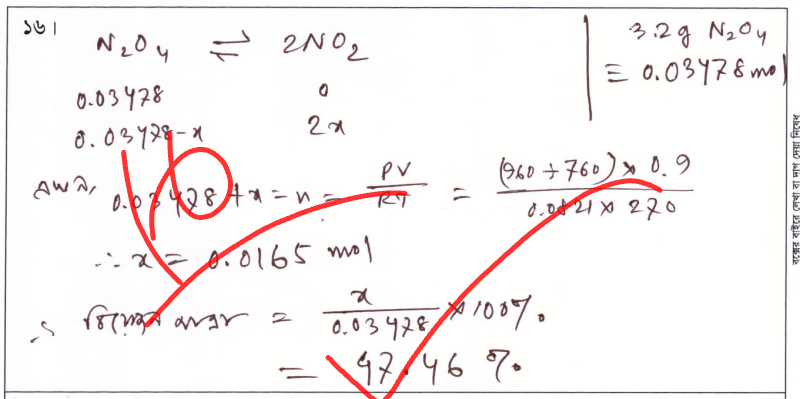 ১৬। N₂O₄ ⇌ 2NO₂
3.2g N₂O₄
≡ 0.03478 mol
0.03478 0
0.03478-x 2x
এখন, 0.03478 + x = n = PV/RT = (960 ÷ 760) × 0.9 / 0.0821 × 270
∴ x = 0.0165 mol
∴ বিয়োজন মাত্রা = x/0.03478 × 100%.
= 47.46 %.
বক্সের বাইরে লেখা বা দাগ দেয়া নিষেধ